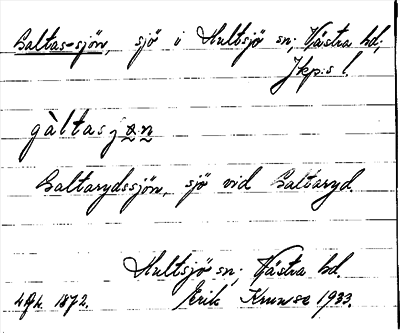 Galtas-sjön, sjö i Hultsjö sn; Västra hd;
Jkp:s l.
gàltasjo̰n̰
Galtarydssjön, sjö vid Galtaryd.
Hultsjö sn; Västra hd.
1872. Erik Krunse 1933.